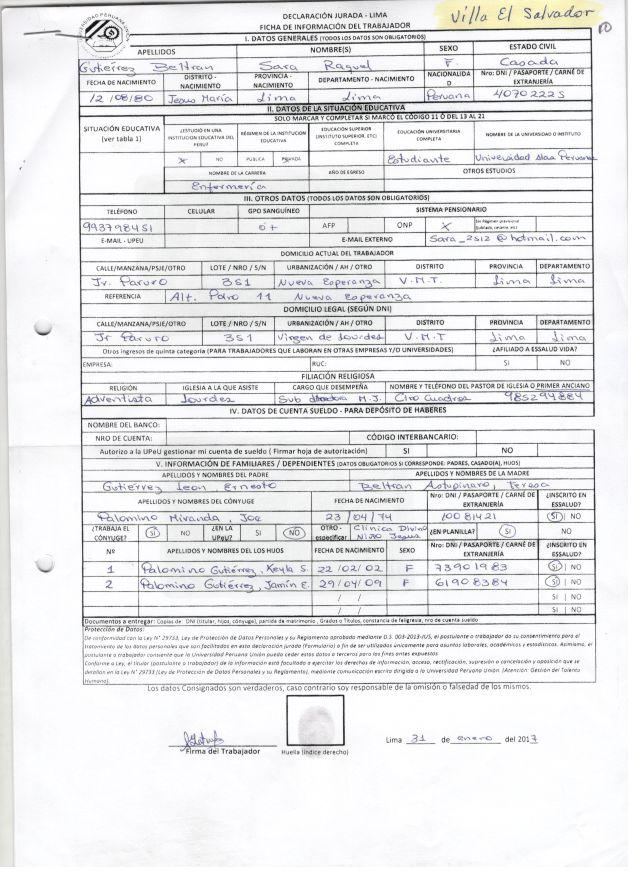 DECLARACIÓN JURADA - LIMA
FICHA DE INFORMACIÓN DEL TRABAJADOR
Villa El Salvador
I. DATOS GENERALES (TODOS LOS DATOS SON OBLIGATORIOS)
APELLIDOS NOMBRE(S) SEXO ESTADO CIVIL
Gutiérrez Beltran Sara Raquel F. Casada
FECHA DE NACIMIENTO DISTRITO - NACIMIENTO PROVINCIA - NACIMIENTO DEPARTAMENTO - NACIMIENTO NACIONALIDAD Nro: DNI / PASAPORTE / CARNÉ DE EXTRANJERÍA
12 /08/80 Jesus María Lima Lima Peruana 40702225
II. DATOS DE LA SITUACIÓN EDUCATIVA
SOLO MARCAR Y COMPLETAR SI MARCÓ EL CÓDIGO 11 Ó DEL 13 AL 21
SITUACIÓN EDUCATIVA (ver tabla 1) ¿ESTUDIÓ EN UNA INSTITUCIÓN EDUCATIVA DEL PERU? RÉGIMEN DE LA INSTITUCIÓN EDUCATIVA EDUCACIÓN SUPERIOR (INSTITUTO SUPERIOR, ETC) COMPLETA EDUCACIÓN UNIVERSITARIA COMPLETA NOMBRE DE LA UNIVERSIDAD O INSTITUTO
X NO PUBLICA PRIVADA Estudiante Universidad Alas Peruanas
NOMBRE DE LA CARRERA AÑO DE EGRESO OTROS ESTUDIOS
Enfermería
III. OTROS DATOS (TODOS LOS DATOS SON OBLIGATORIOS)
TELÉFONO CELULAR GPO SANGUÍNEO SISTEMA PENSIONARIO
993798451 O+ AFP ONP X
E-MAIL - UPEU E-MAIL EXTERNO Sara_2512@hotmail.com
DOMICILIO ACTUAL DEL TRABAJADOR
CALLE/MANZANA/PSJE/OTRO LOTE / NRO / S/N URBANIZACIÓN / AH / OTRO DISTRITO PROVINCIA DEPARTAMENTO
Jr. Paruro 351 Nueva Esperanza V.M.T. Lima Lima
REFERENCIA Alt. Pdro 11 Nueva Esperanza
DOMICILIO LEGAL (SEGÚN DNI)
CALLE/MANZANA/PSJE/OTRO LOTE / NRO / S/N URBANIZACIÓN / AH / OTRO DISTRITO PROVINCIA DEPARTAMENTO
Jr Paruro 351 Virgen de Lourdes V.M.T Lima Lima
Otros ingresos de quinta categoría (PARA TRABAJADORES QUE LABORAN EN OTRAS EMPRESAS Y/O UNIVERSIDADES) ¿AFILIADO A ESSALUD VIDA?
EMPRESA: RUC: SI NO
FILIACIÓN RELIGIOSA
RELIGIÓN IGLESIA A LA QUE ASISTE CARGO QUE DESEMPEÑA NOMBRE Y TELÉFONO DEL PASTOR DE IGLESIA O PRIMER ANCIANO
Adventista Lourdes Sub M.J. Ciro Cuadros 985294884
IV. DATOS DE CUENTA SUELDO - PARA DEPÓSITO DE HABERES
NOMBRE DEL BANCO:
NRO DE CUENTA: CÓDIGO INTERBANCARIO:
Autorizo a la UPeU gestionar mi cuenta de sueldo ( Firmar hoja de autorización) SI NO
V. INFORMACIÓN DE FAMILIARES / DEPENDIENTES (DATOS OBLIGATORIOS SI CORRESPONDE: PADRES, CASADO(A), HIJOS)
APELLIDOS Y NOMBRES DEL PADRE APELLIDOS Y NOMBRES DE LA MADRE
Gutiérrez Leon Ernesto Beltran Astupinaro, Teresa
APELLIDOS Y NOMBRES DEL CÓNYUGE FECHA DE NACIMIENTO Nro: DNI / PASAPORTE / CARNÉ DE EXTRANJERÍA ¿INSCRITO EN ESSALUD?
Palomino Miranda, Joe 23 /04/74 10081421 SI NO
¿TRABAJA EL CÓNYUGE? SI NO ¿EN LA UPeU? SI NO OTRO - especificar Clínica Divino Niño Jesus ¿EN PLANILLA? SI NO
Nº APELLIDOS Y NOMBRES DE LOS HIJOS FECHA DE NACIMIENTO SEXO Nro: DNI / PASAPORTE / CARNÉ DE EXTRANJERÍA ¿INSCRITO EN ESSALUD?
1 Palomino Gutiérrez, Keyla S. 22/02/02 F 73901983 SI NO
2 Palomino Gutiérrez, Jamín E. 29/04/09 F 61908384 SI NO
/ / SI NO
/ / SI NO
Documentos a entregar: Copias de: DNI (titular, hijos, cónyuge), partida de matrimonio, Grados o Títulos, constancia de feligresía, nro de cuenta sueldo
Protección de Datos:
De conformidad con la Ley N° 29733, Ley de Protección de Datos Personales y su Reglamento aprobado mediante D.S. 003-2013-JUS, el postulante o trabajador da su consentimiento para el
tratamiento de los datos personales que son facilitados en esta declaración jurada (Formulario) a fin de ser utilizados únicamente para asuntos laborales, académicos y estadísticos. Asimismo, el
postulante o trabajador consiente que la Universidad Peruana Unión pueda ceder estos datos a terceros para los fines antes expuestos
Conforme a Ley, el titular (postulante o trabajador) de la información está facultado a ejercitar los derechos de información, acceso, rectificación, supresión o cancelación y oposición que se
detallan en la Ley N° 29733 (Ley de Protección de Datos Personales y su Reglamento), mediante comunicación escrita dirigida a la Universidad Peruana Unión. (Atención: Gestión del Talento
Humano).
Los datos Consignados son verdaderos, caso contrario soy responsable de la omisión o falsedad de los mismos.
Firma del Trabajador Huella (índice derecho) Lima 31 de enero del 2017